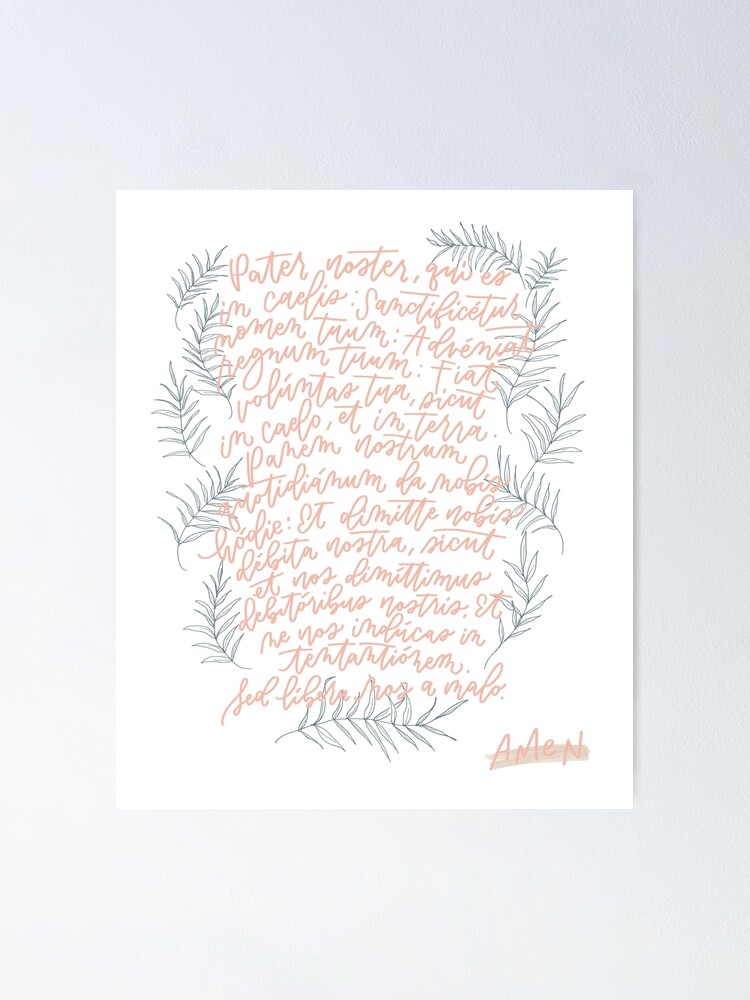 Pater noster, qui es
in caelis: Sanctificétur
nomen tuum: Advéniat
regnum tuum: Fiat
volúntas tua, sicut
in caelo, et in terra.
Panem nostrum
quotidiánum da nobis
hódie: Et dimitte nobis
débita nostra, sicut
et nos dimíttimus
debitóribus nostris. Et
ne nos indúcas in
tentantiónem.
Sed líbera nos a malo.
AMeN.